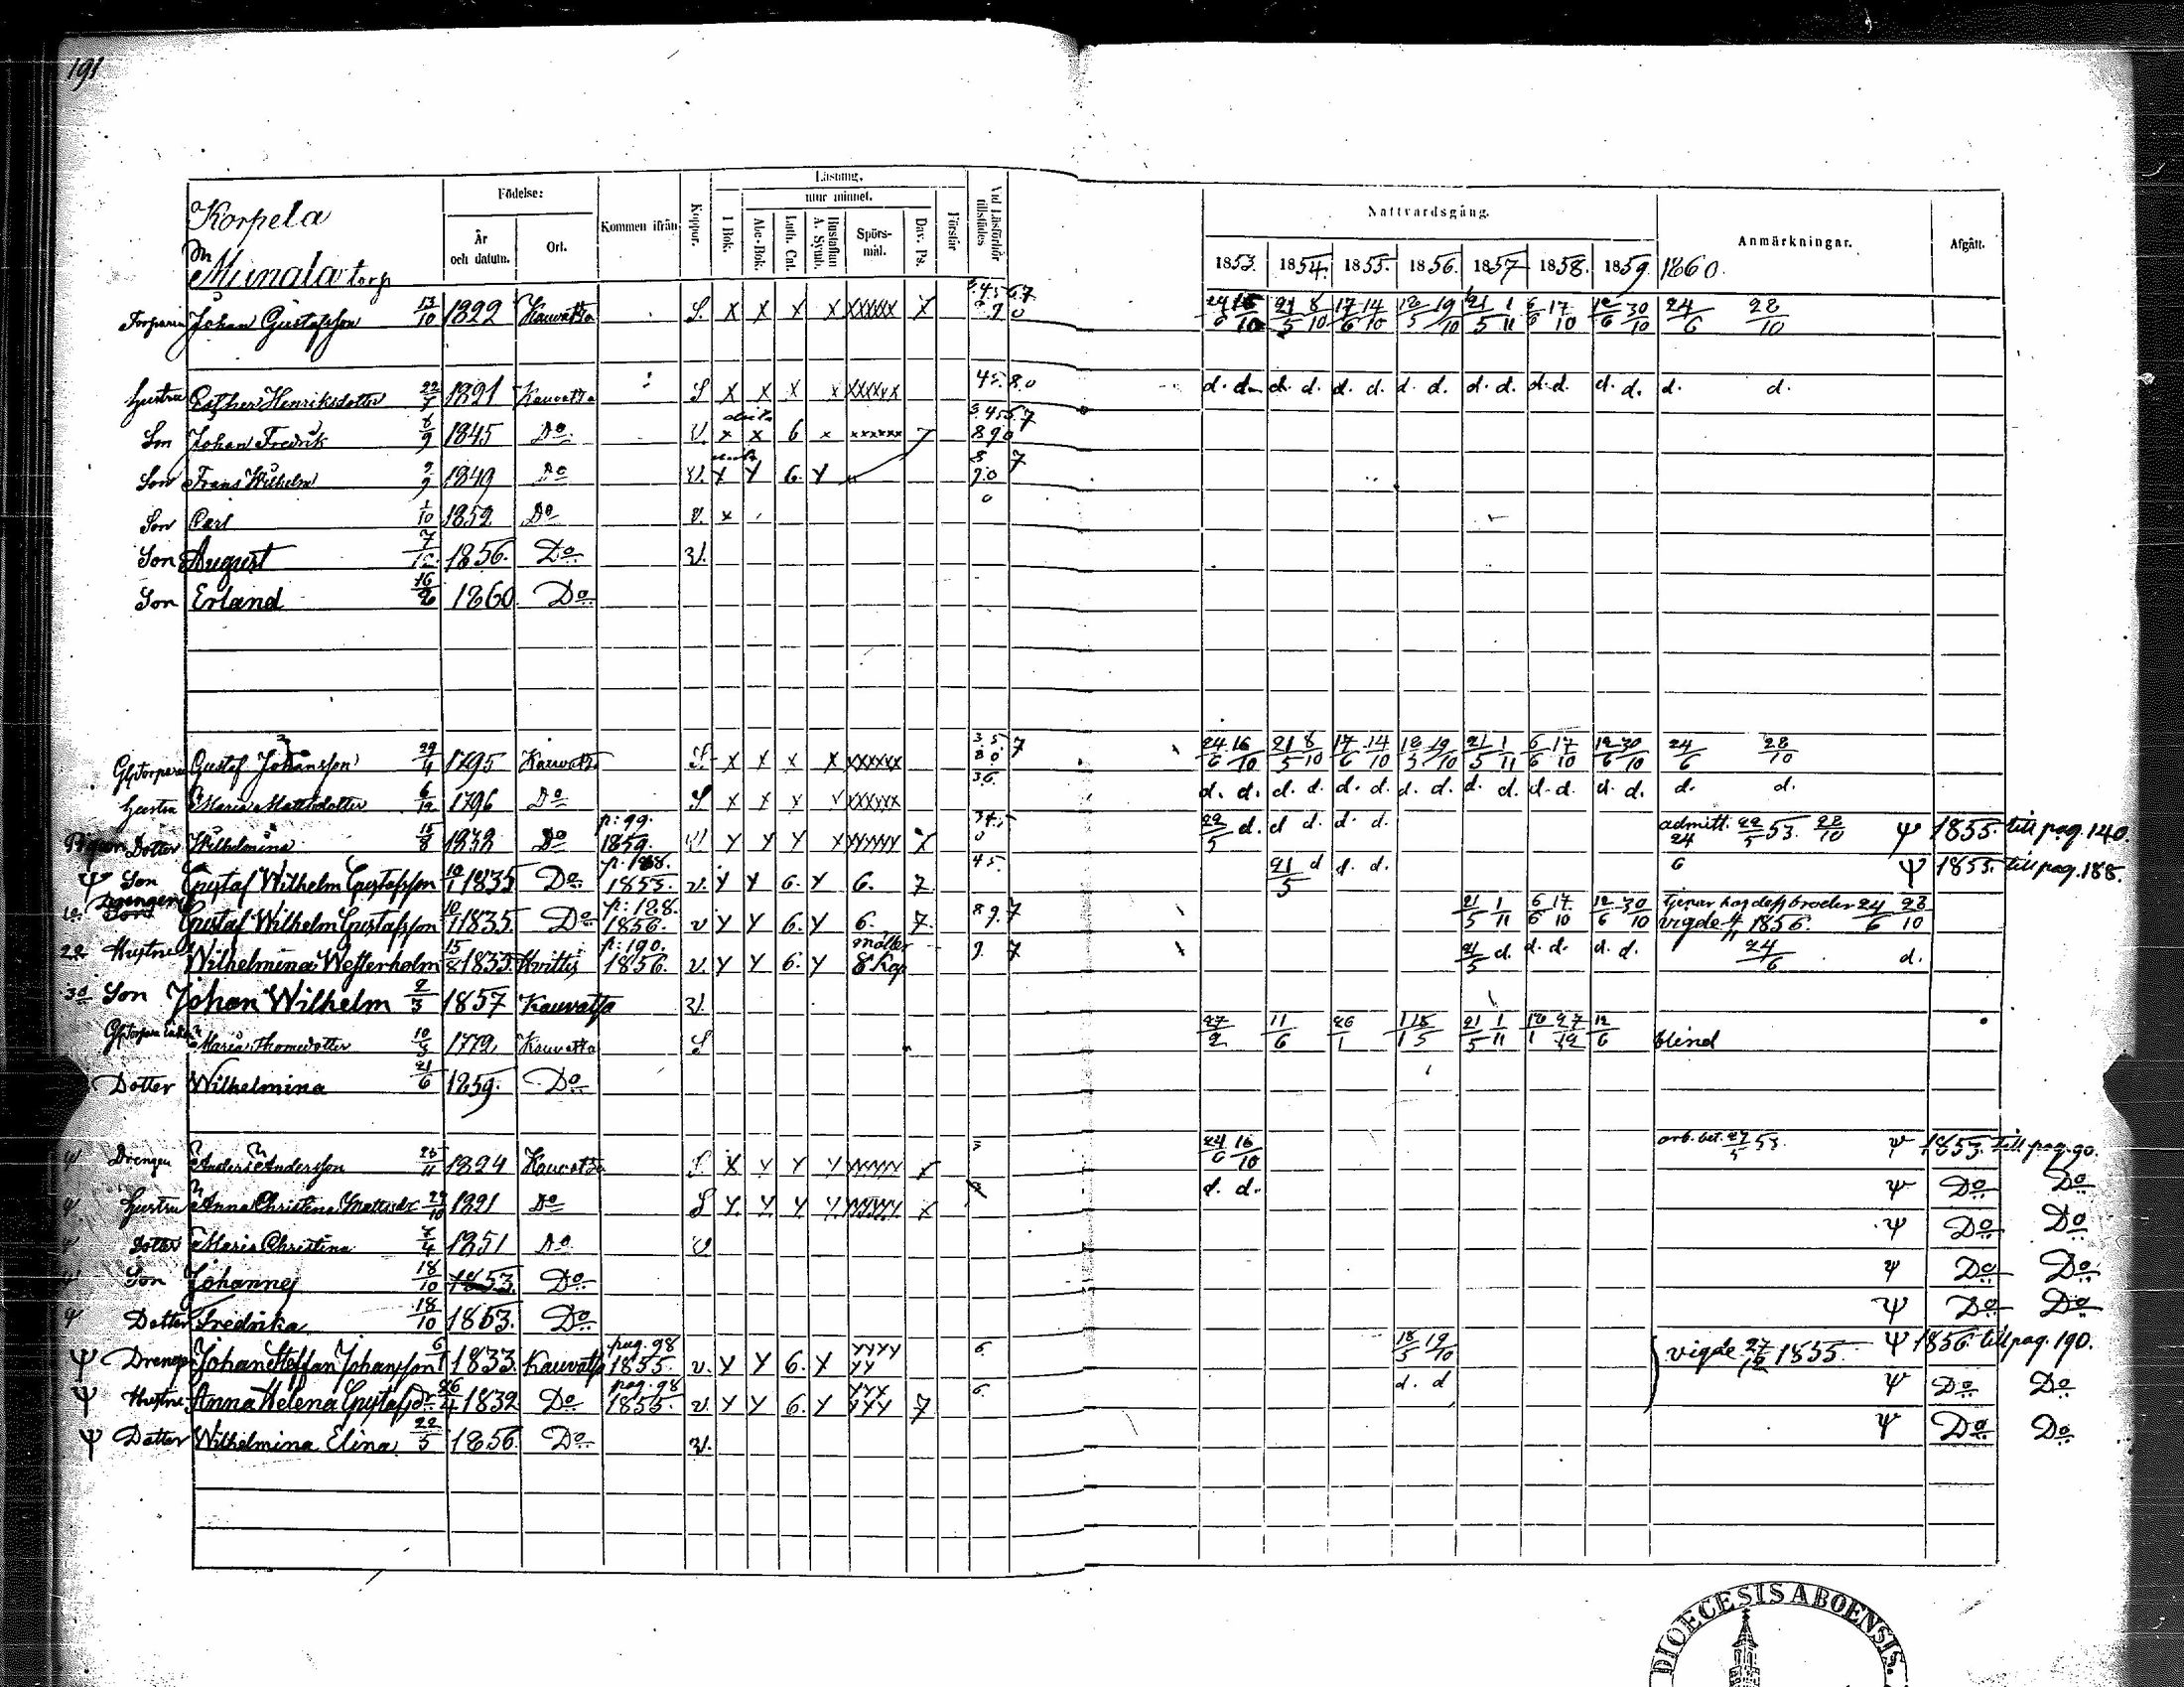 191
Korpela
Munala torp
Födelse:
År och datum.
Ort.
Kommen ifrån
Koppor.
Läsning,
utur minnet.
I Bok.
Abc-Bok.
Luth. Cat.
Hustaflan A. Symb.
Spörsmål.
Dav. Ps.
Förstår
Vid Läsförhör tillstädes
Nattvardsgång.
1853. 1854. 1855. 1856. 1857 1858. 1859 1860.
Anmärkningar.
Afgått.
Johan Gustafsson 13/10 1822 Kauvatsa S. x x x x xxxxxx 7 24/6 16/10 21/5 8/10 17/6 14/10 18/5 19/10 21/5 1/11 6/6 17/10 12/6 30/10 24/6 28/10
Hustru Esther Henriksdotter 1821 Kauvatsa S x x x x xxxxxx 45.80 d. d. d. d. d. d. d. d. d. d. d. d. d. d. d. d.
Son Johan Fredrik 1845 Do V. x x 6 x xxxxxx 7
Son Frans Wilhelm 1849 Do V. x y 6. y
Son Carl 1/10 1852 Do v. x
Son August 1856. Do V.
Son Erland 16/2 1860 Do
Gustaf Johansson 29/4 1795 Kauvatsa S x x x x xxxxxx 24/6 16/10 21/5 8/10 17/6 14/10 18/5 19/10 21/5 1/11 6/6 17/10 12/6 30/10 24/6 28/10
Hustru Maria Mattsdotter 6/12 1796 Do S x x x x xxxxxx 36. d. d. d. d. d. d. d. d. d. d. d. d. d. d. d. d.
Pigan Dotter Wilhelmina 15/8 1832 Do p: 99. 1859. 22/5 d. d d. d. d. admitt. 22/5 53. 28/10 24/6 Ψ 1855. till pag. 140.
Ψ Son Gustaf Wilhelm Gustafsson 10/1 1835 Do 1855. v. y y 6. y 6. 7 45. 21/5 d d. d. Ψ 1855. till pag. 188.
Drengen Son Gustaf Wilhelm Gustafsson 10/1 1835. Do p: 128. 1856. v y y 6. y 6. 7. 89.7 21/5 1/11 6/6 17/10 12/6 30/10 tjenar hos dess broder 24/6 28/10 vigde 1856.
Hustru Wilhelmina Westerholm 15/8 1835. Hvittis p: 190. 1856. v. y y 6. y 8 Kap 9. 7 21/5 d. d. d. d. d. 24/6 d.
Son Johan Wilhelm 2/3 1857 Kauvatsa V.
Maria Thomasdotter 1772 Kauvatsa S 27/2 11/6 26/1 21/5 1/11 12/6 blind
Dotter Wilhelmina 21/6 1859. Do
Ψ Drengen Anders Andersson 25/11 1824 Kauvatsa S x y y y 7 3 24/6 16/10 Ψ 1853. till pag. 90.
Ψ Hustru Anna Christina Mattsdr 29/10 1821 Do S y y y y d. d. Ψ Do Do
Ψ Dotter Maria Christina 1851 Do V Ψ Do Do
Ψ Son Johannes 18/10 1853. Do Ψ Do Do
Ψ Dotter Fredrika 18/10 1853. Do Ψ Do Do
Ψ Drengen Johan Steffan Johansson 1833. Kauvatsa pag. 98 1855. v. y y 6. y yyyy yy 6. 18/5 19/10 vigde 27/12 1855. Ψ 1856. till pag. 190.
Ψ Hustru Anna Helena Gustafsdr 26/4 1832 Do pag. 98 1855. v. y y 6. y yyy yyy 7 6. d. d Ψ Do Do
Ψ Dotter Wilhelmina Elina 22/5 1856 Do V. Ψ Do Do
DIOECESIS ABOENSIS.